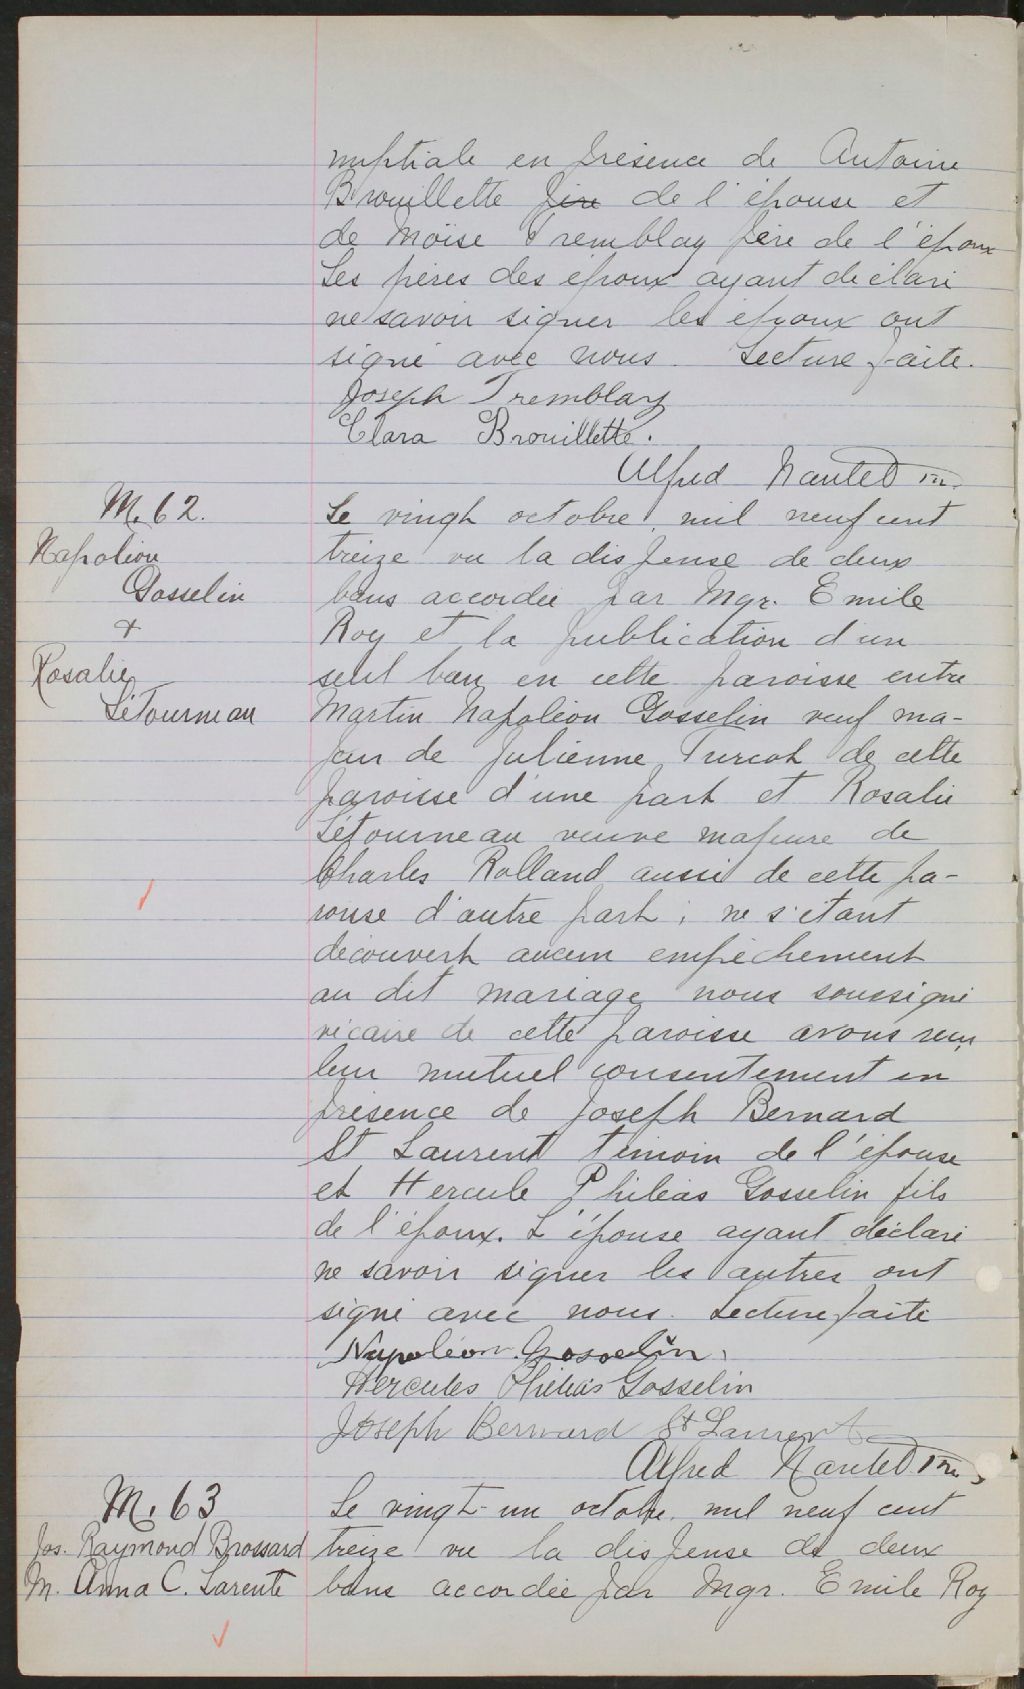 nuptiale en présence de Antoine
Brouillette père de l'épouse et
de Moïse Tremblay père de l'époux
Les pères des époux ayant déclaré
ne savoir signer les époux ont
signé avec nous. Lecture faite.
Joseph Tremblay
Clara Brouillette.
Alfred Nantel ptre.
M. 62.
Napoléon
Gosselin
+
Rosalie
Létourneau
Le vingt octobre mil neuf cent
treize vu la dispense de deux
bans accordée par Mgr. Emile
Roy et la publication d'un
seul ban en cette paroisse entre
Martin Napoléon Gosselin veuf ma-
jeur de Julienne Turcot de cette
paroisse d'une part et Rosalie
Létourneau veuve majeure de
Charles Rolland aussi de cette pa-
roisse d'autre part; ne s'étant
découvert aucun empêchement
au dit mariage nous soussigné
vicaire de cette paroisse avons reçu
leur mutuel consentement en
présence de Joseph Bernard
St Laurent témoin de l'épouse
et Hercule Philéas Gosselin fils
de l'époux. L'épouse ayant déclaré
ne savoir signer les autres ont
signé avec nous. Lecture faite
Napoléon Gosselin.
Hercules Philéas Gosselin
Joseph Bernard St Laurent
Alfred Nantel ptre.
M. 63
Jos. Raymond Brossard
M. Anna C. Larente
Le vingt-un octobre mil neuf cent
treize vu la dispense de deux
bans accordée par Mgr. Emile Roy